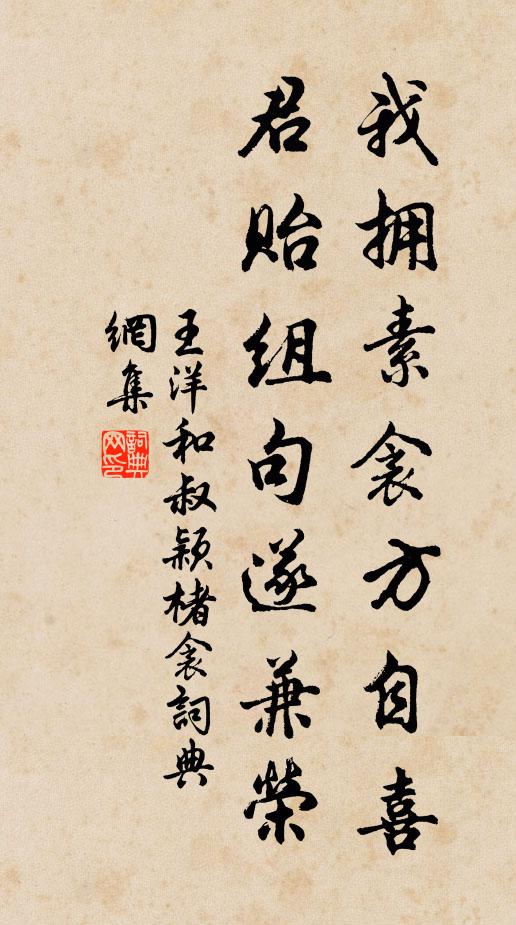 我拥素衾方自喜
君贻组句遂兼荣
王洋和叔颖楮衾詞典
網集
詞典网印